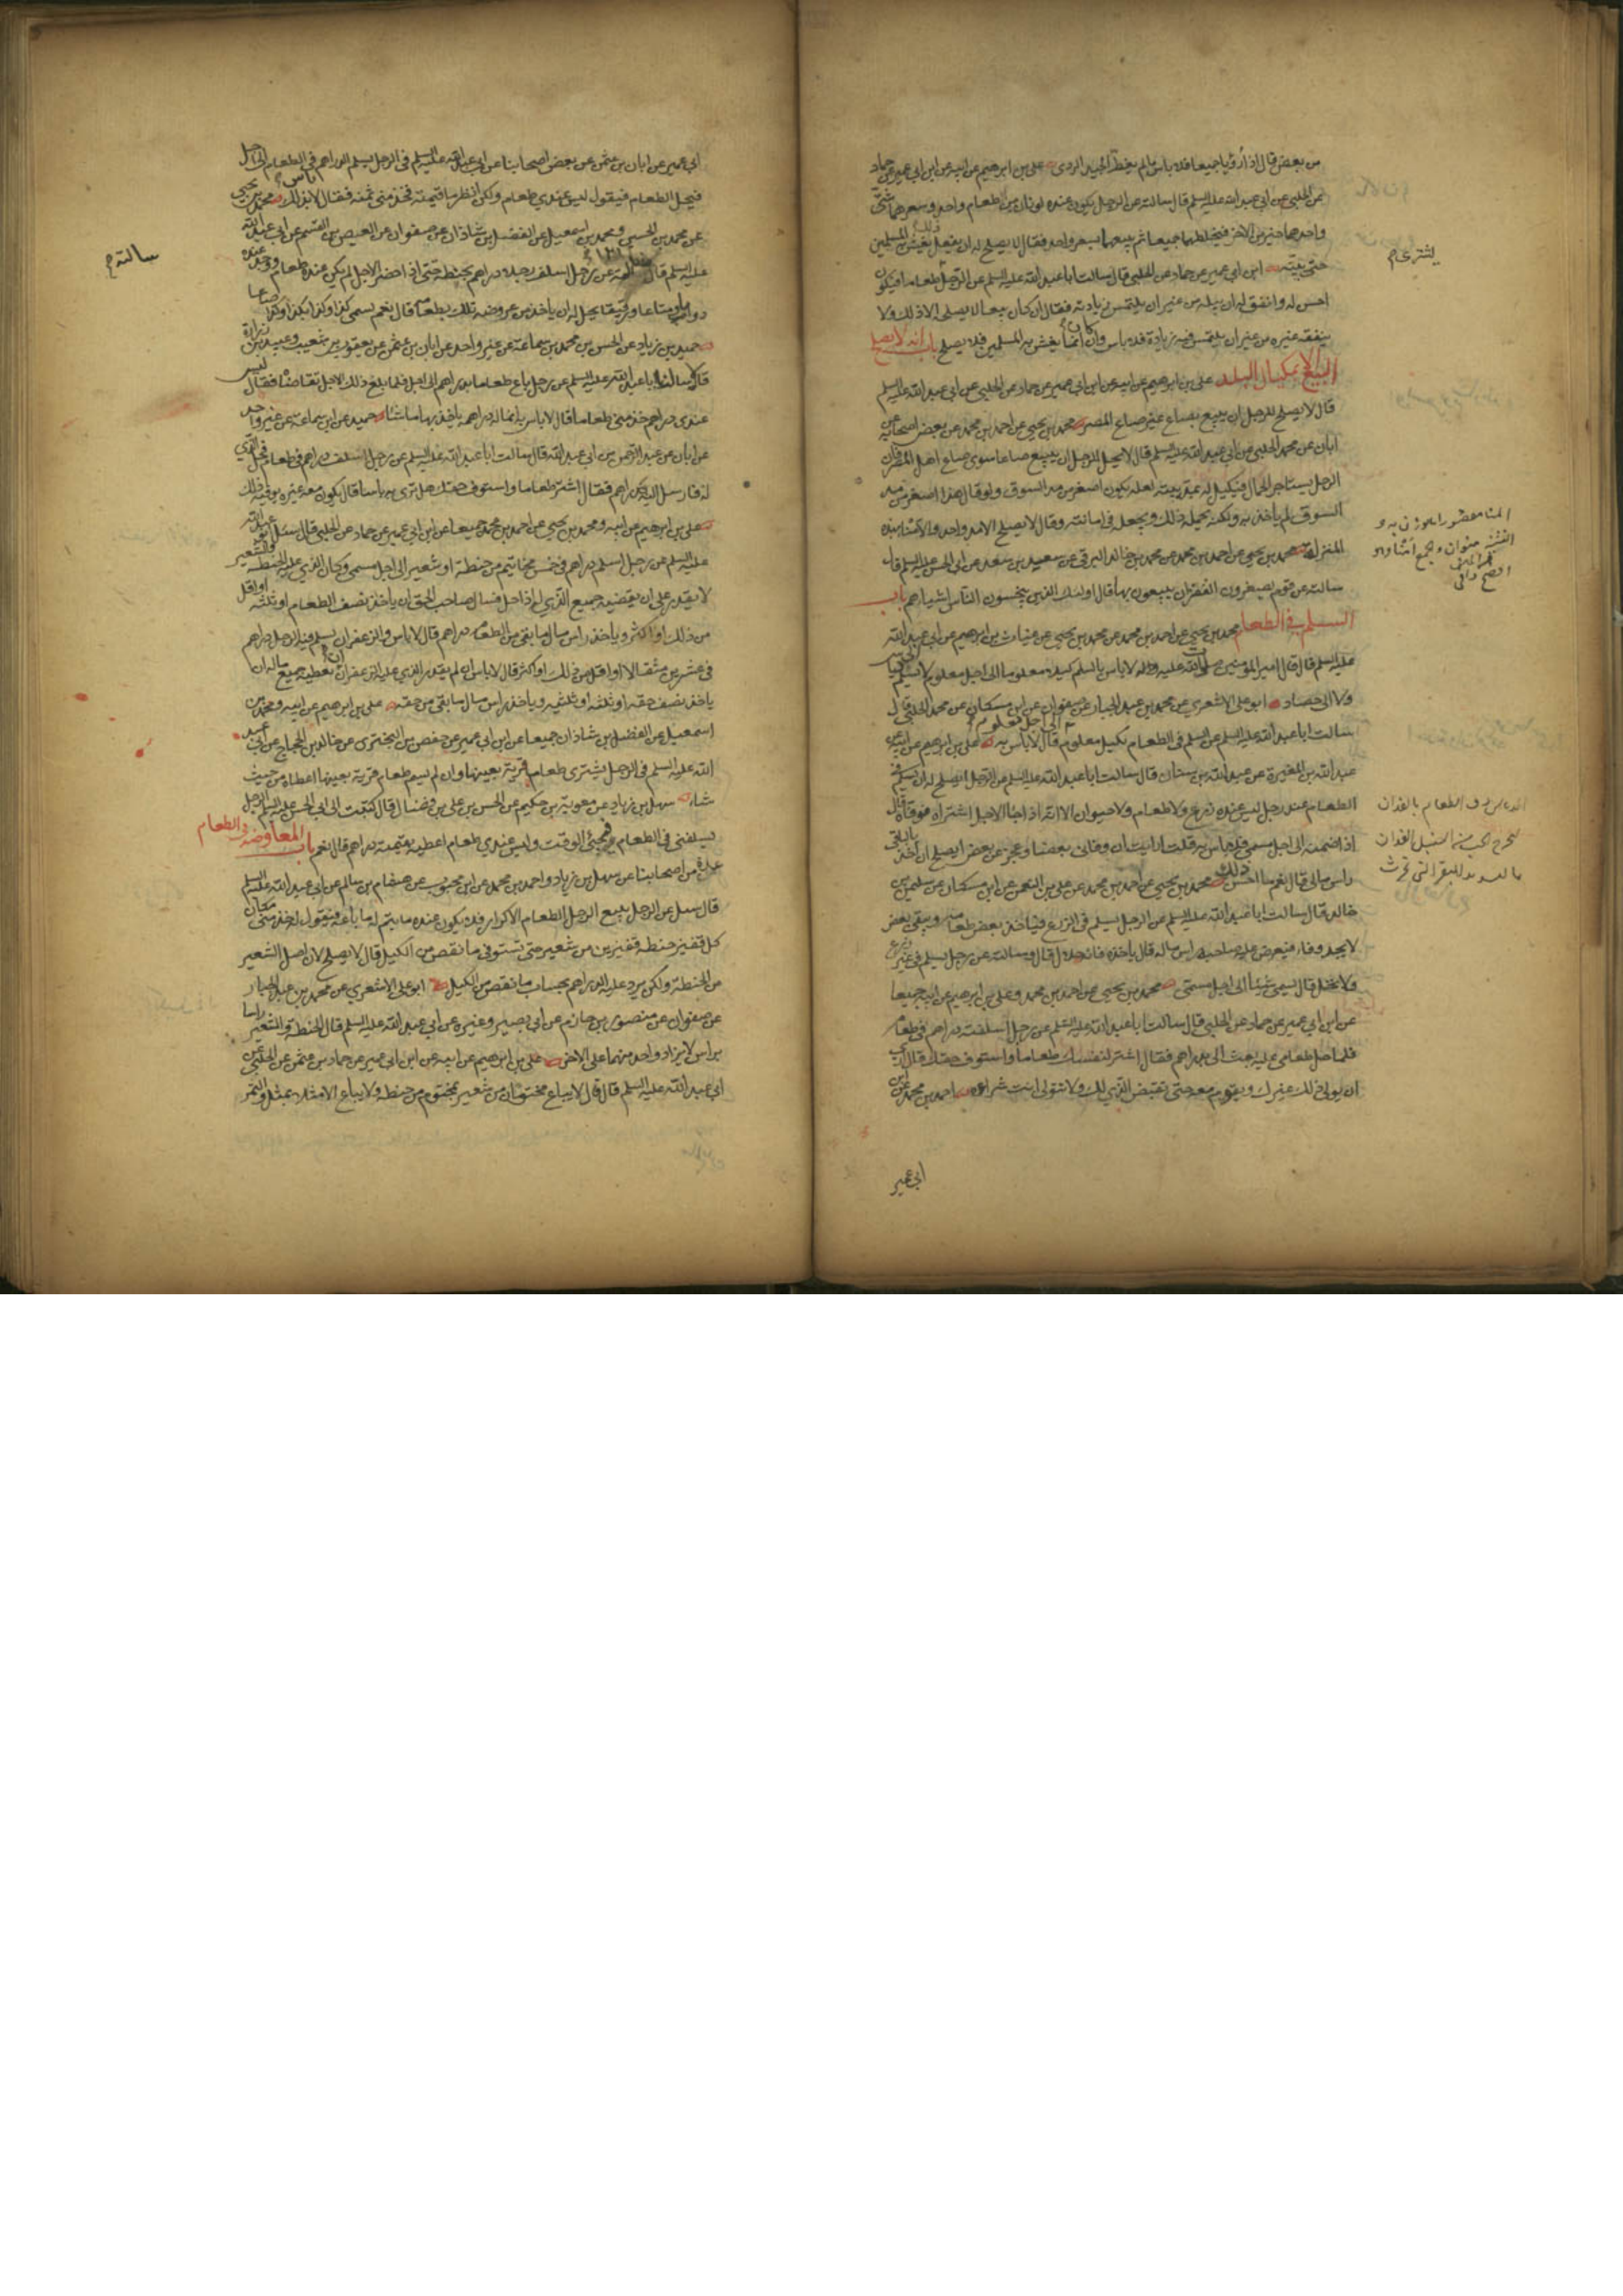 من بعض قال اذا رؤيا جميعا فلا باس ما لم يغط الجيد الردى علي بن ابرهيم عن ابيه عن ابن ابي عمير عن حماد
عن الحلبي عن ابي عبد الله عليه السلم قال سالته عن الرجل يكون عنده لونان من طعام واحد وسعرهما شتى
واحدهما خير من الاخر فيخلطهما جميعا ثم يبيعهما بسعر واحد فقال لا يصلح له ان يفعل ذلك يغش به المسلمين
حتى يبينه ابن ابي عمير عن حماد عن الحلبي قال سالت ابا عبد الله عليه السلم عن الرجل طعاما فيكون
احسن له وانفق له ان يبله من غير ان يلتمس زيادته فقال ان كان بيعا لا يصلحه الا ذلك ولا
ينفقه غيره من غير ان يلتمس فيه زيادة فلا باس وان كان انما يغش به المسلمين فلا يصلح باب انه لا يصلح
البيع الا بمكيال البلد علي بن ابرهيم عن ابيه عن ابن ابي عمير عن حماد عن الحلبي عن ابي عبد الله عليه السلم
قال لا يصلح للرجل ان يبيع بصاع غير صاع المصر محمد بن يحيى عن احمد بن محمد عن بعض اصحابه عن
ابان عن محمد الحلبي عن ابي عبد الله عليه السلم قال لا يحل للرجل ان يبيع صاعا سوى صاع اهل المصر فان
الرجل يستاجر الجمال فيكيل له بمد بيته لعله يكون اصغر من مد السوق ولو قال هذا اصغر من مد
السوق لم ياخذ به ولكنه يحمله ذلك ويجعله في امانته وقال لا يصلح الا مد واحد والامناء بهذه
المنزلة محمد بن يحيى عن احمد بن محمد عن محمد بن خالد البرقي عن سعيد بن سعد عن ابي الحسن عليه السلم قال
سالته عن قوم يصغرون القفزان يبيعون بها قال اولئك الذين يبخسون الناس اشياءهم باب
السلم في الطعام محمد بن يحيى عن احمد بن محمد عن محمد بن يحيى عن غياث بن ابرهيم عن ابي عبد الله
عليه السلم قال قال امير المؤمنين صلوات الله عليه واله لا باس بالسلم كيلا معلوما الى اجل معلوم لا تسلمه الى دياس
ولا الى حصاد ابو علي الاشعري عن محمد بن عبد الجبار عن صفوان عن ابن مسكان عن محمد الحلبي قال
سالت ابا عبد الله عليه السلم عن السلم في الطعام بكيل معلوم الى اجل معلوم قال لا باس به علي بن ابرهيم عن ابيه عن
عبد الله بن المغيرة عن عبد الله بن سنان قال سالت ابا عبد الله عليه السلم عن الرجل ايصلح له ان يسلم في
الطعام عند رجل ليس عنده زرع ولا طعام ولا حيوان الا انه اذا جاء الاجل اشتراه فوفاه قال
اذا ضمنه الى اجل مسمى فلا باس به قلت ارايت ان وفاني بعضا وعجز عن بعض ايصلح ان اخذ بالباقي
راس مالي قال نعم ما احسن ذلك محمد بن يحيى عن احمد بن محمد عن علي بن النعمن عن ابن مسكان عن سليمن بن
خالد قال سالت ابا عبد الله عليه السلم عن الرجل يسلم في الزرع فياخذ بعض طعامه ويبقى بعض
لا يجد وفاء فيعرض عليه صاحبه راس ماله قال ياخذه فانه حلال قال وسالته عن رجل يسلم في غير زرع
ولا نخل قال يسمى شيئا الى اجل مسمى محمد بن يحيى عن احمد بن محمد وعلي بن ابرهيم عن ابيه جميعا
عن ابن ابي عمير عن حماد عن الحلبي قال سالت ابا عبد الله عليه السلم عن رجل اسلفته دراهم في طعام
فلما حل طعامي عليه بعث الى بدراهم فقال اشتر لنفسك طعاما واستوف حقك قال ارى
ان يولى ذلك غيرك ويقوم معه حتى تقبض الذي لك ولا تتولى انت شراءه احمد بن محمد عن ابن
ابي عمير
يشتري خ
ابي عمير عن ابان بن عثمن عن بعض اصحابنا عن ابي عبد الله عليه السلم في الرجل يسلم الدراهم في الطعام الى اجل
فيحل الطعام فيقول ليس عندي طعام ولكن انظر ما قيمته فخذ مني ثمنه فقال لا باس بذلك محمد بن يحيى
عن محمد بن الحسين ومحمد بن اسمعيل عن الفضل بن شاذان عن صفوان عن العيص بن القسم عن ابي عبد الله
عليه السلم قال سالته عن رجل اسلف رجلا دراهم بحنطة حتى اذا حضر الاجل لم يكن عنده طعام ووجد عنده
دواب ومتاعا ورقيقا يحل له ان ياخذ من عروضه تلك بطعامه قال نعم يسمى كذا وكذا بكذا وكذا صاعا
حميد بن زياد عن الحسن بن محمد بن سماعة عن غير واحد عن ابان بن عثمن عن يعقوب بن شعيب وعبيد بن زرارة
قال سالنا ابا عبد الله عليه السلم عن رجل باع طعاما بدراهم الى اجل فلما بلغ ذلك الاجل تقاضاه فقال ليس
عندى دراهم خذ مني طعاما قال لا باس به انما له دراهمه ياخذ بها ما شاء حميد عن ابن سماعة عن غير واحد
عن ابان عن عبد الرحمن بن ابي عبد الله قال سالت ابا عبد الله عليه السلم عن رجل اسلف دراهم في طعام فحل الذي
له فارسل اليه بدراهم فقال اشتر طعاما واستوف حقك هل ترى به باسا قال يكون معه غيره يوفيه ذلك
علي بن ابرهيم عن ابيه ومحمد بن يحيى عن احمد بن محمد جميعا عن ابن ابي عمير عن حماد عن الحلبي قال سئل ابو عبد الله
عليه السلم عن رجل اسلم دراهم في خمس مخاتيم من حنطة او شعير الى اجل مسمى وكان الذي عليه الحنطة والشعير
لا يقدر على ان يقضيه جميع الذي له اذا حل فسال صاحب الحق ان ياخذ نصف الطعام او ثلثه او اقل
من ذلك او اكثر وياخذ راس مال ما بقى من الطعام دراهم قال لا باس والزعفران يسلم فيه الرجل دراهم
في عشرين مثقالا او اقل من ذلك او اكثر قال لا باس ان لم يقدر الذي عليه الزعفران ان يعطيه جميع ماله ان
ياخذ نصف حقه او ثلثه او ثلثيه وياخذ راس مال ما بقي من حقه علي بن ابرهيم عن ابيه ومحمد بن
اسمعيل عن الفضل بن شاذان جميعا عن ابن ابي عمير عن حفص بن البختري عن خالد بن الحجاج عن ابي عبد
الله عليه السلم في الرجل يشترى طعام قرية بعينها وان لم يسم طعام قرية بعينها اعطاه من حيث
شاء سهل بن زياد عن معوية بن حكيم عن الحسن بن علي بن فضال قال كتبت الى ابي الحسن عليه السلم الرجل
يسلفني في الطعام فيجئ الوقت وليس عندي طعام اعطيه بقيمته دراهم قال نعم باب المعاوضة في الطعام
عدة من اصحابنا عن سهل بن زياد واحمد بن محمد عن ابن محبوب عن هشام بن سالم عن ابي عبد الله عليه السلم
قال سئل عن الرجل يبيع الرجل الطعام الاكرار فلا يكون عنده ما يتم له ما باعه فيقول له خذ مني مكان
كل قفيز حنطة قفيزين من شعير حتى تستوفي ما نقص من الكيل قال لا يصلح لان اصل الشعير
من الحنطة ولكن يرد عليه الدراهم بحساب ما نقص من الكيل ابو علي الاشعري عن محمد بن عبد الجبار
عن صفوان عن منصور بن حازم عن ابي بصير وغيره عن ابي عبد الله عليه السلم قال الحنطة والشعير راسا
براس لا يزاد واحد منهما على الاخر علي بن ابرهيم عن ابيه عن ابن ابي عمير عن حماد بن عثمن عن الحلبي عن
ابي عبد الله عليه السلم قال قال لا يباع مختومان من شعير بمختوم من حنطة ولا يباع الا مثلا بمثل والتمر
سالته خ